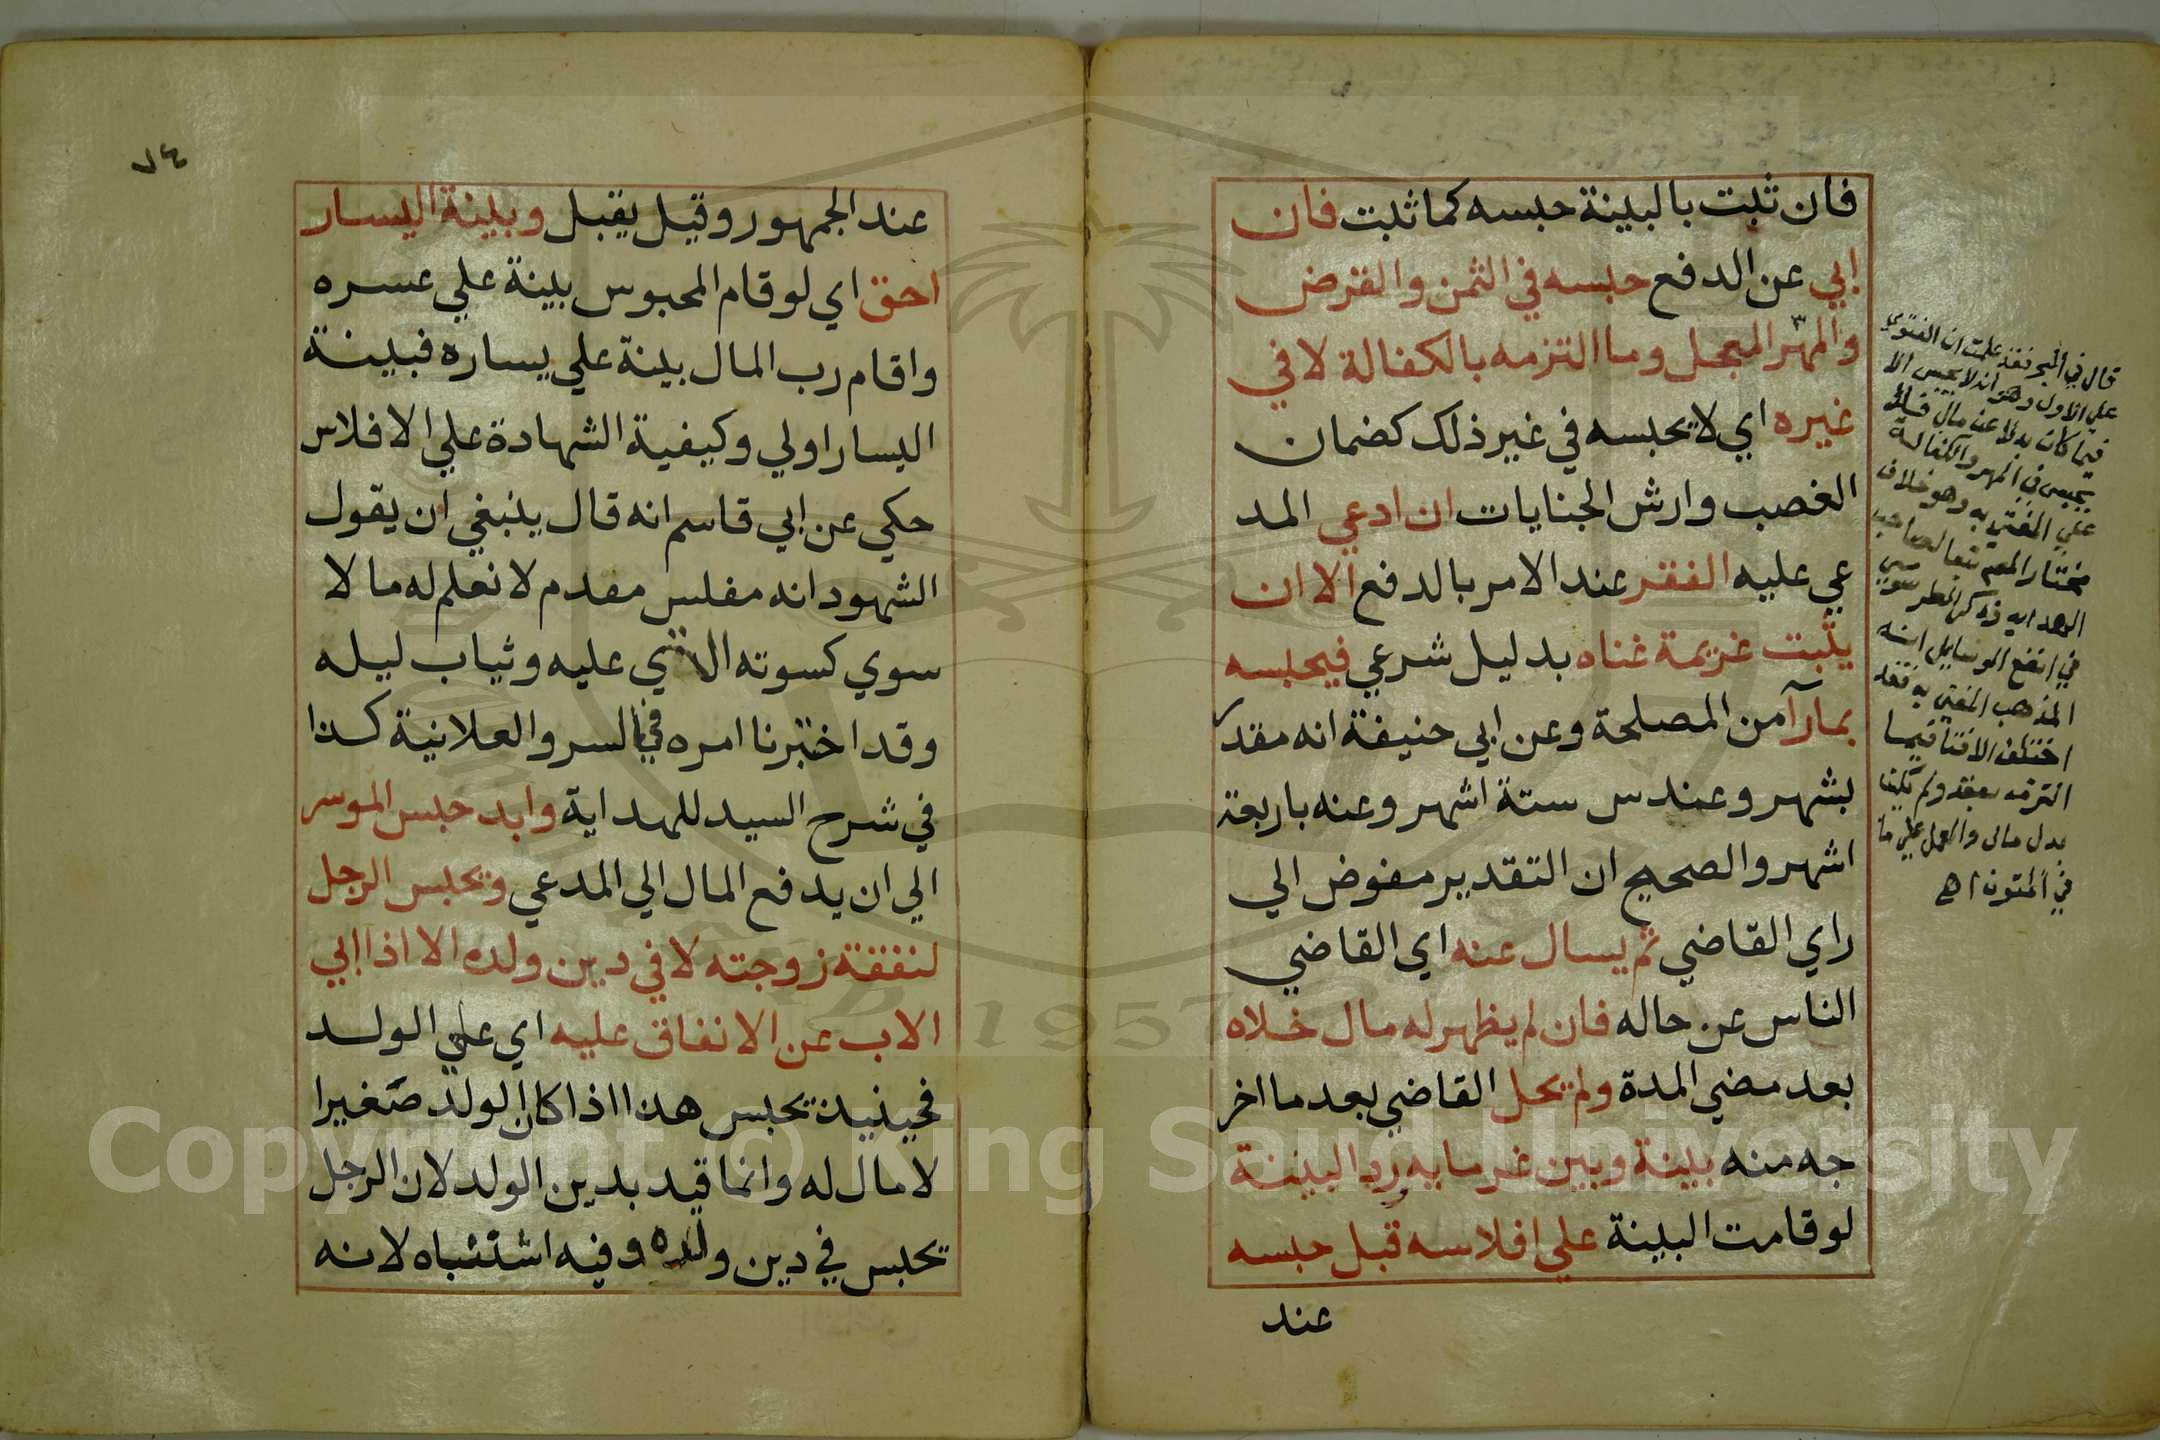 فان ثبت بالبينة حبسه كما ثبت فان
ابي عن الدفع حبسه في الثمن والقرض
والمهر المعجل وما التزمه بالكفالة لا في
غيره اي لا يحبسه في غير ذلك كضمان
الغصب وارش الجنايات ان ادعي المد
عي عليه الفقر عند الامر بالدفع الا ان
يثبت غريمة غناه بدليل شرعي فيحبسه
بما رآ من المصلحة وعن ابي حنيفة انه مقد
بشهر وعند س ستة اشهر وعنه باربعة
اشهر والصحيح ان التقدير مفوض الي
راي القاضي ثم يسال عنه اي القاضي
الناس عن حاله فان لم يظهر له مال خلاه
بعد مضي المدة ولم يحل القاضي بعد ما اخر
جه منه بينة وبين غرمايه رد البينة
لو قامت البينة علي افلاسه قبل حبسه
عند
قال في البحر فقد علمت ان الفتوي
علي الاول وهو انه لا يحبس الا
فيما كان بدلا عن مال فلا
يحبس في المهر والكفالة
علي المفتي به وهو خلاف
مختار المص تبعا لصاحب
الهدايه وذكر الطرسوسي
في انفع الوسايل انه
المذهب المفتي به فقد
اختلف الافتا فيما
التزمه بعقد ولم يكن
بدل مال والعمل علي ما
في المتون اهـ
٧٤
عند الجمهور وقيل يقبل وبينة اليسار
احق اي لو قام المحبوس بينة علي عسره
واقام رب المال بينة علي يساره فبينة
اليسار اولي وكيفية الشهادة علي الافلاس
حكي عن ابي قاسم انه قال ينبغي ان يقول
الشهود انه مفلس مقدم لا نعلم له مالا
سوي كسوته التي عليه وثياب ليله
وقد اختبرنا امره في السر والعلانية كذا
في شرح السيد للهداية وابد حبس الموسر
الي ان يدفع المال الي المدعي ويحبس الرجل
لنفقة زوجته لا في دين ولده الا اذا ابي
الاب عن الانفاق عليه اي علي الولد
فحينيذ يحبس هذا اذا كان الولد صغيرا
لا مال له وانما قيد بدين الولد لان الرجل
يحبس في دين ولده وفيه اشتباه لانه
Copyright © King Saud University
1957